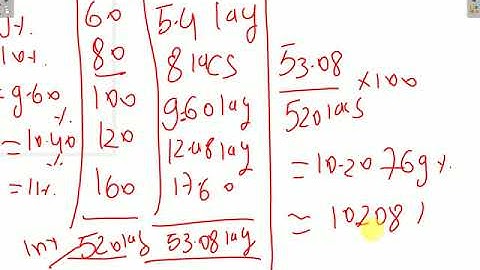 60 5.4 lay
10%. 80 8 lacs 53.08
= 9.60 %. 100 9.60 lay 520 lacs × 100
= 10.40 %. 120 12.48 lay = 10.20769 %.
= 11%. 160 17.60 ≈ 10.208 %
Int 520 lay 53.08 lay